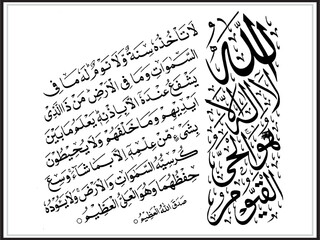 الله
لا إله إلا
هو الحي
القيوم
لَا تَأْخُذُهُ سِنَةٌ وَلَا نَوْمٌ لَهُ مَا فِي
السَّمٰوَاتِ وَمَا فِي الْأَرْضِ مَنْ ذَا الَّذِي
يَشْفَعُ عِنْدَهُ إِلَّا بِإِذْنِهِ يَعْلَمُ مَا بَيْنَ
أَيْدِيهِمْ وَمَا خَلْفَهُمْ وَلَا يُحِيطُونَ
بِشَيْءٍ مِنْ عِلْمِهِ إِلَّا بِمَا شَاءَ وَسِعَ
كُرْسِيُّهُ السَّمٰوَاتِ وَالْأَرْضَ وَلَا يَئُودُهُ
حِفْظُهُمَا وَهُوَ الْعَلِيُّ الْعَظِيمُ
صَدَقَ اللهُ الْعَظِيمُ